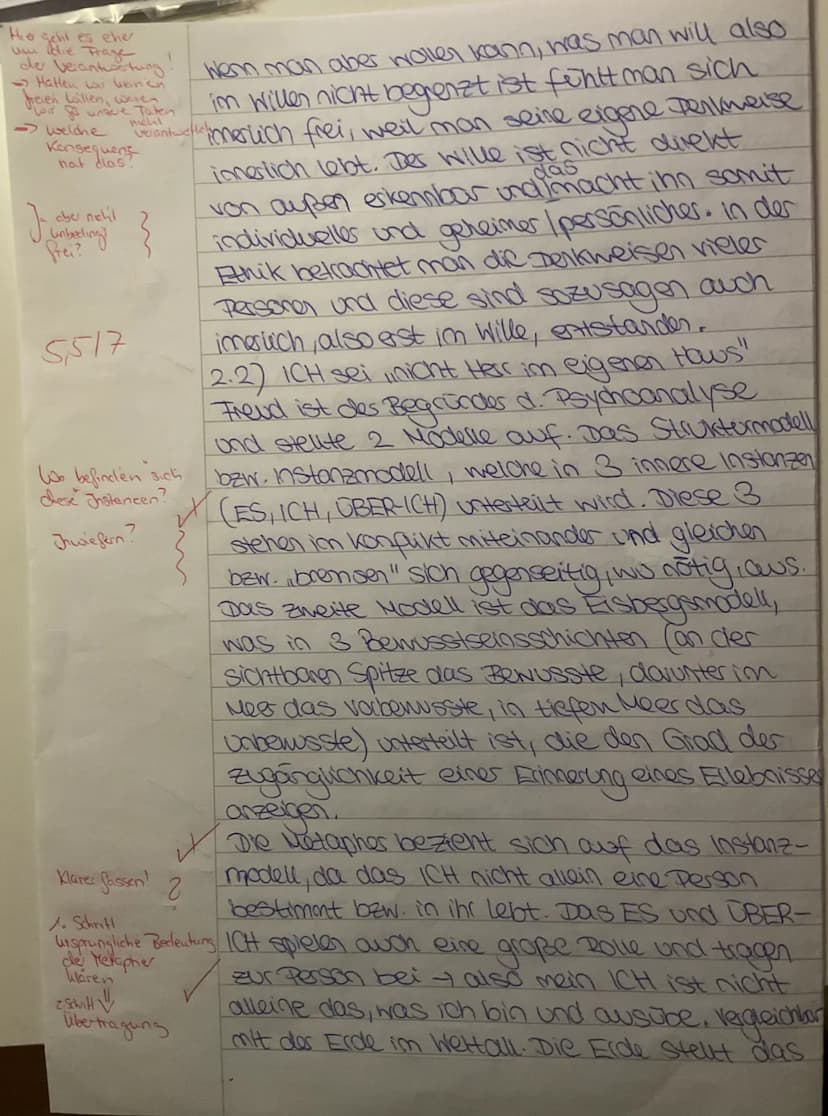 Hier geht es eher
um die Frage
der Verantwortung!
→ Hätten wir keinen
freien Willen, wären
wir für unsere Taten
nicht verantwortlich
→ welche
Konsequenz
hat das?
wenn man aber wollen kann, was man will also
im Willen nicht begrenzt ist fühlt man sich
innerlich frei, weil man seine eigene Denkweise
innerlich lebt. Der Wille ist nicht direkt
von außen erkennbar und das macht ihn somit
individueller und geheimer/persönlicher. In der
Ethik betrachtet man die Denkweisen vieler
Personen und diese sind sozusagen auch
innerlich, also erst im Wille, entstanden.
aber nicht
unbedingt
frei?
5,5/7
2.2) ICH sei „nicht Herr im eigenen Haus"
Freud ist der Begründer d. Psychoanalyse
und stellte 2 Modelle auf. Das Strukturmodell
bzw. Instanzmodell, welche in 3 innere Instanzen
(ES, ICH, ÜBER-ICH) unterteilt wird. Diese 3
stehen im Konflikt miteinander und gleichen
bzw. „bremsen" sich gegenseitig, wo nötig, aus.
Das zweite Modell ist das Eisbergsmodell,
was in 3 Bewusstseinsschichten (an der
sichtbaren Spitze das Bewusste, darunter im
Meer das Vorbewusste, in tiefem Meer das
Unbewusste) unterteilt ist, die den Grad der
zugänglichkeit einer Erinnerung eines Erlebnisses
anzeigen.
Wo befinden sich
diese Instanzen?
Inwiefern?
Die Metapher bezieht sich auf das Instanz-
modell, da das ICH nicht allein eine Person
bestimmt bzw. in ihr lebt. Das ES und ÜBER-
ICH spielen auch eine große Rolle und tragen
zur Person bei → also mein ICH ist nicht
alleine das, was ich bin und ausübe. Vergleichbar
mit der Erde im Weltall. Die Erde stellt das
klarer fassen!
?
1. Schritt
ursprüngliche Bedeutung
der Metapher
klären
2 Schritt
Übertragung